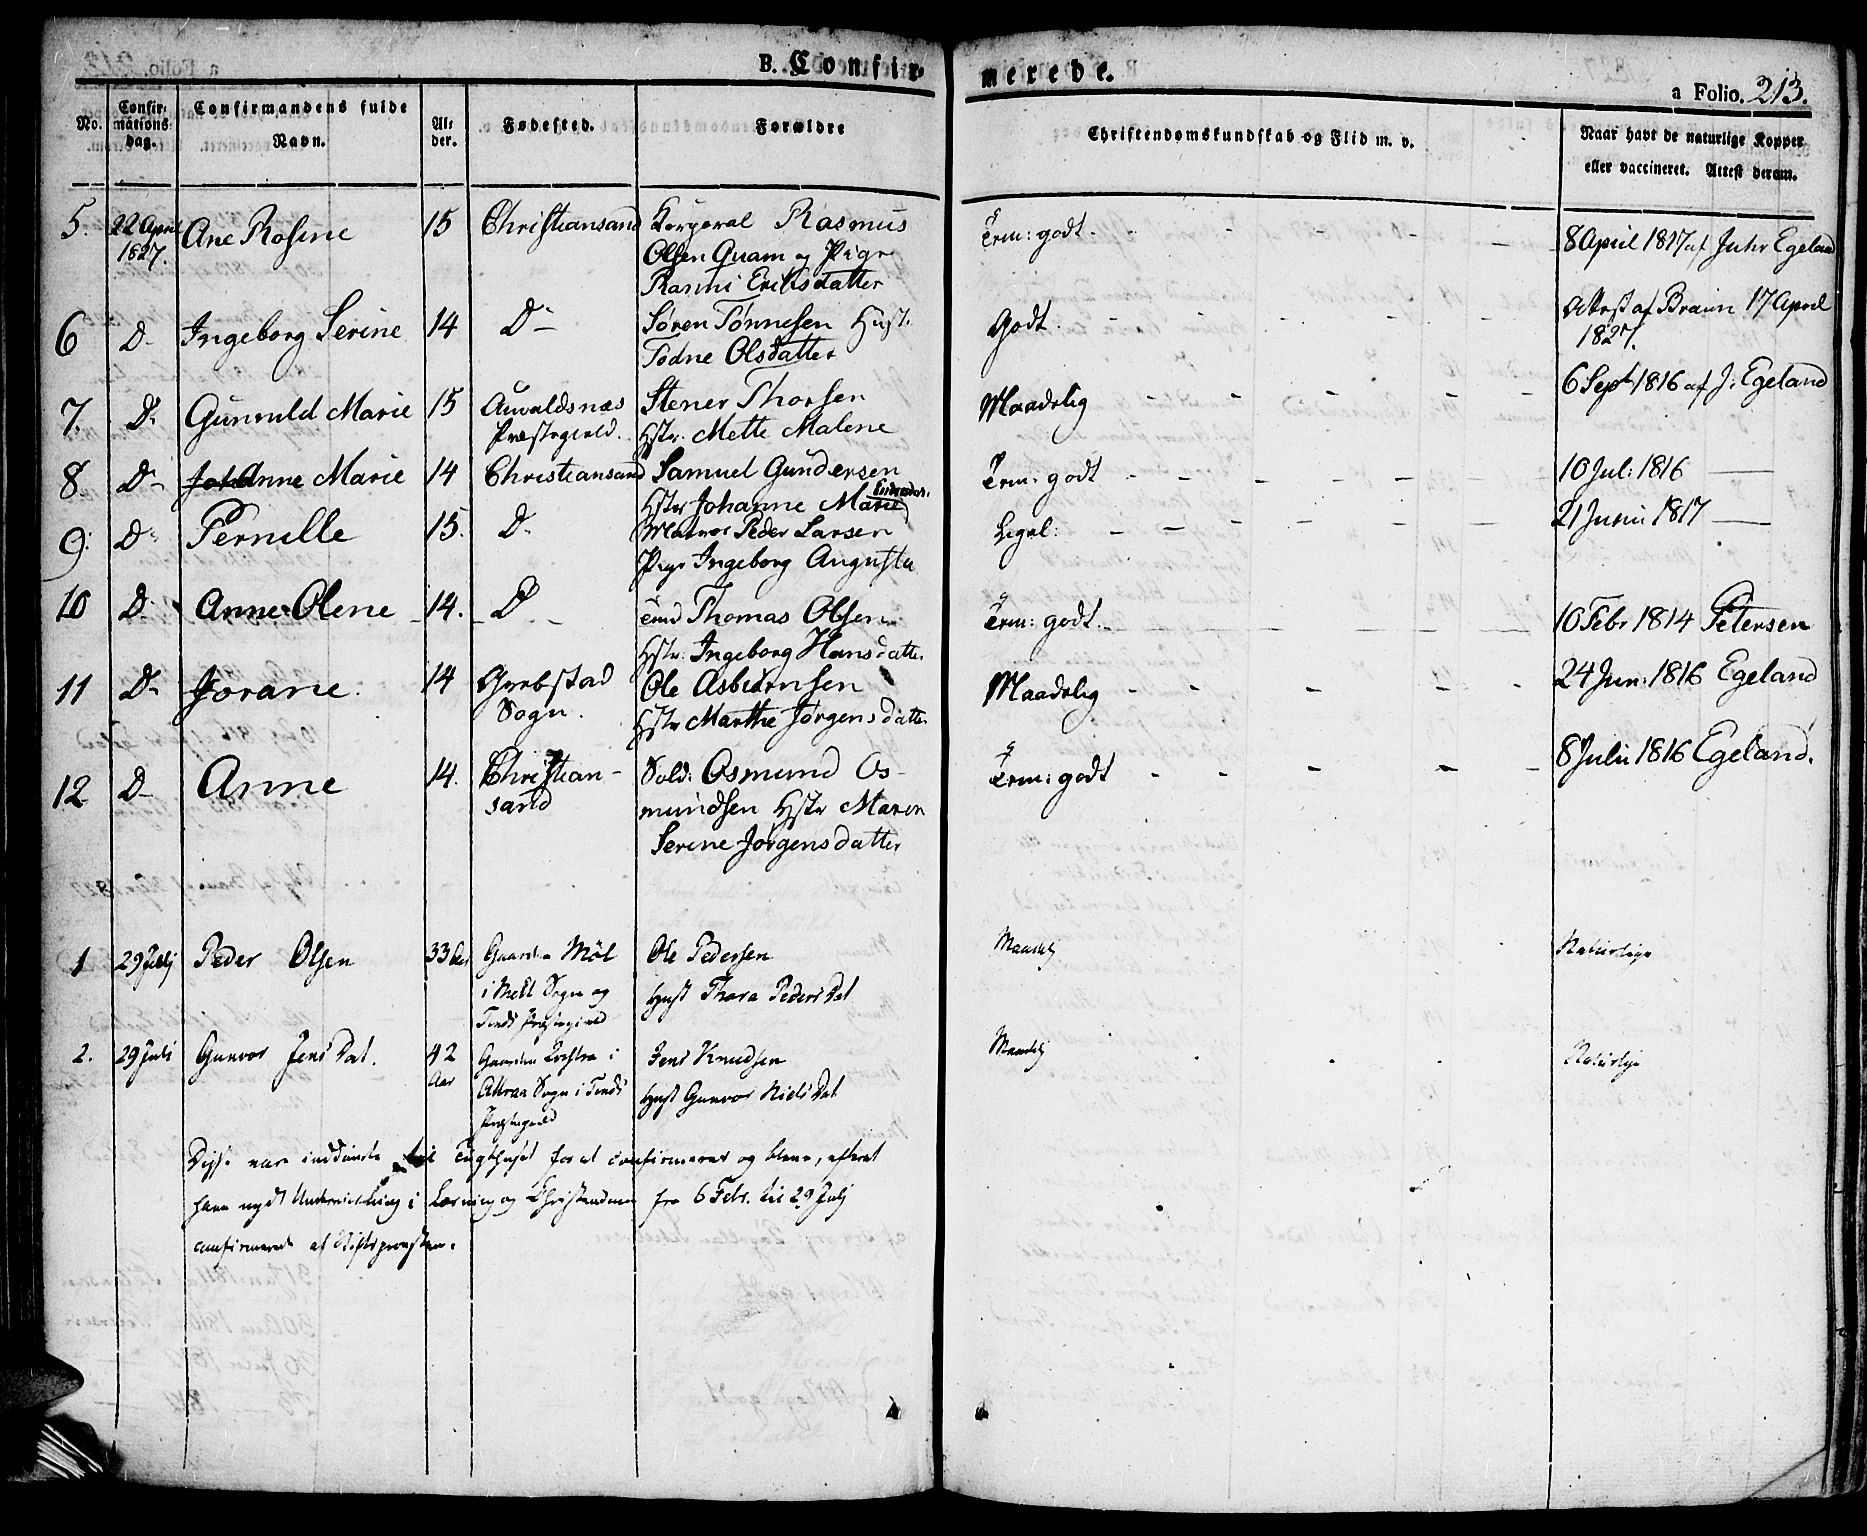 B. Confirmerede.
a Folio. 213.
No. Confirmationsdag. Confirmandens fulde Navn. Alder. Fødested. Forældre Christendomskundskab og Flid m. v. Naar havt de naturlige Kopper eller vaccineret. Attest derom.
5. 22 April Ane Rosine 15 Christiansand Korporal Rasmus godt. 8 April 1817 af Juhr Egeland
1827. Olsen Quam og Pige
Eriksdatter
6 D- Ingeborg Serine 14 D- Søren Tønnesen Hust. Godt. Attest af Braun 17 April
Todne Olsdatter 1827.
7. D- Gunnild Marie 15 Auvaldsnæs Stener Thorsen Maadelig 6 Sept 1816 af J. Egeland
Præstegield. Hstr. Mette Malene
8 D- Anne Marie 14 Christiansand Samuel Gundersen godt 10 Jul: 1816
Hstr Johanne Marie
9. D- Pernille 15. D- Matros Peder Larsen 21 Juni 1817
Pige Ingeborg Augusta
10 D- Anne Olene 14. D- Thomas Olsen godt. 10 Febr 1814 Petersen
Hstr: Ingeborg Hansdatter
11 D- Jorane 14 Ole Asbiørnsen Maadelig 24 Jun: 1816 Egeland
Sogn. Hstr Marthe Jørgensdatter
12 D- Anne 14. Christian- Sold: Osmund Os- godt 8 Juli 1816 Egeland.
sand mundsen Hstr Maren
Serine Jørgensdatter
1 29 Julj Peder Olsen 33 Aar Gaarden Møl Ole Pedersen Maadelj Naturlige
i Sogn og Hust Thora Peders Dat
Tinds Præstegield
2. 29 Juli Gunvor Jens Dat. 42 Gaarden i Jens Knudsen Maadelj Naturlige
Aar Attraa Sogn i Tinds Hust Gunvor Niels Dat
Præstegield
Disse vare inddømte til Tugthuset for at confirmeres og bleve, efterat
have nydt Underviisning i Læsning og Christendom fra 6 Febr. til 29 Julj
confirmerede af Stiftsprovsten.